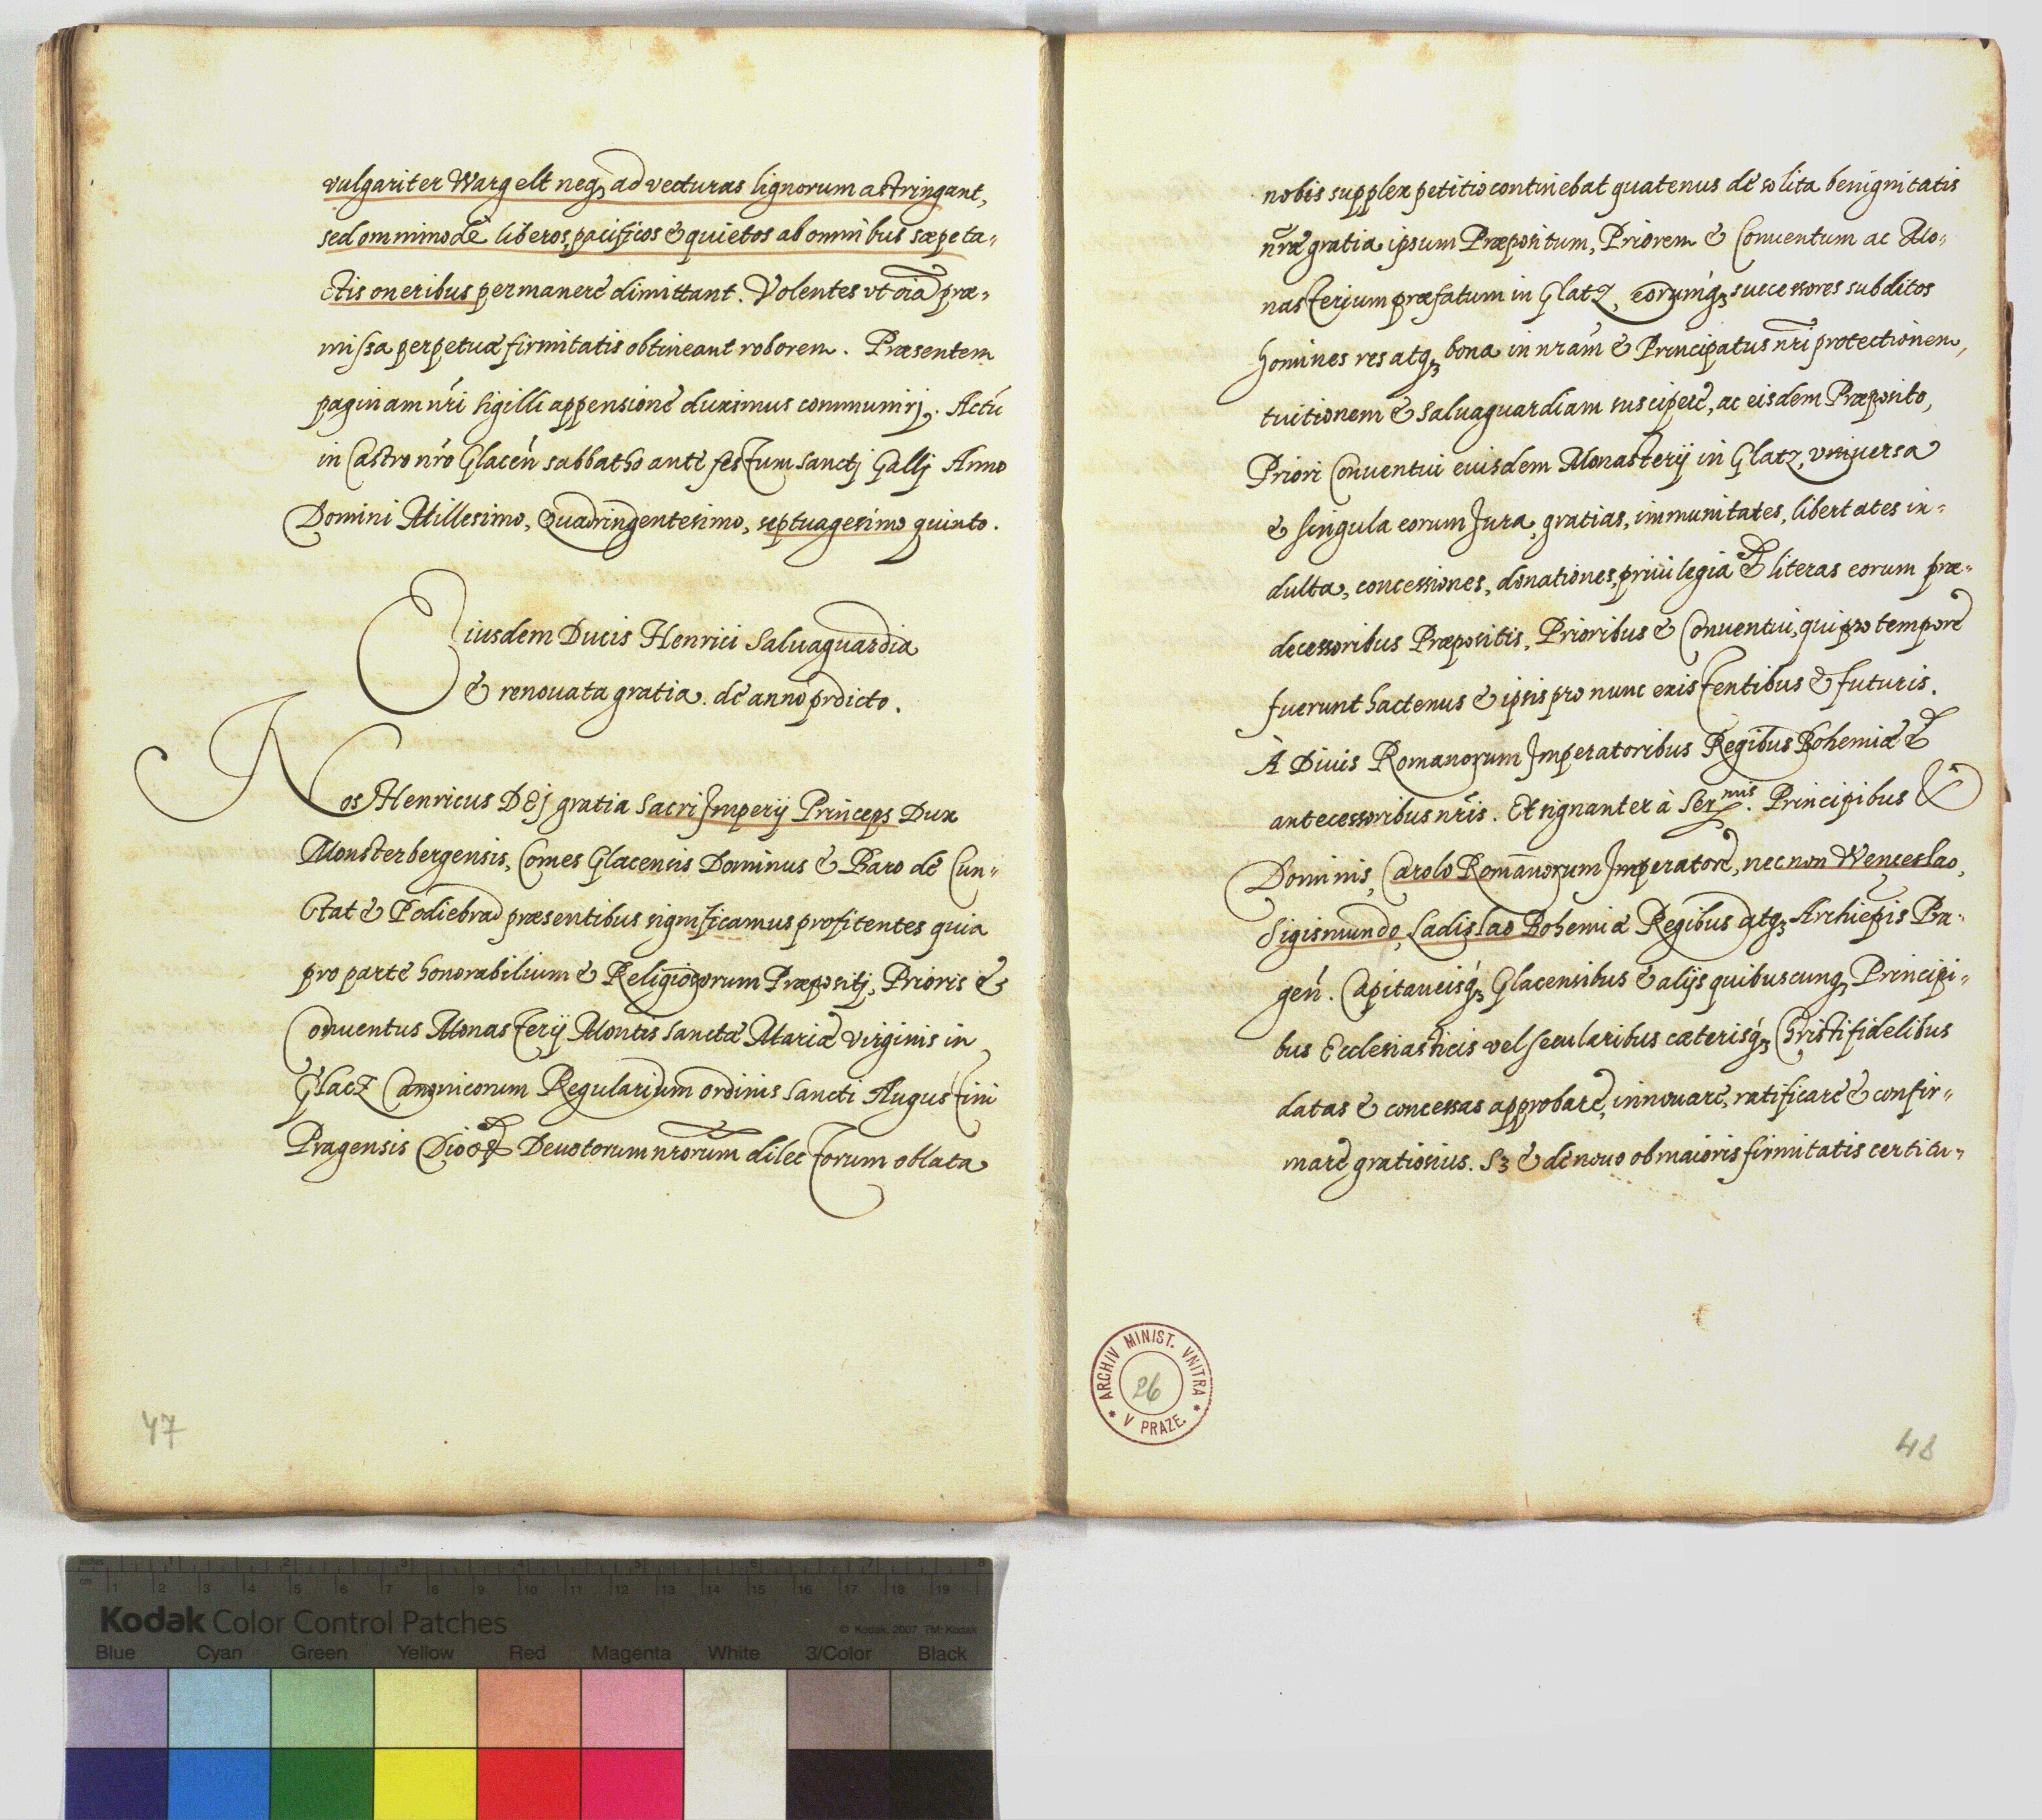 vulgariter Wargelt neq₃ ad vecturas lignorum astringant,
sed ommimode liberos, pacificos & quietos ab omnibus sæpe ta-
ctis oneribus permanere dimittant. Volentes vt oīa præ-
missa perpetuæ firmitatis obtineant roborem. Præsentem
paginam nr̄i sigilli appensione duximus communirj. Actū
in Castro nr̄o Glaceń sabbatho ante festum sanctj Gallj Anno
Domini Millesimo, Quadringentesimo, septuagesimo quinto.
Eiusdem Ducis Henrici Saluaguardia
& renouata gratia. de anno prdicto.
Nos Henricus DEj gratia Sacri Imperij Princeps Dux
Monsterbergensis, Comes Glacensis Dominus & Baro de Cun-
stat & Podiebrad præsentibus significamus profitentes quia
pro parte honorabilium & Religiosorum Præpositj, Prioris &
Conuentus Monasterij Montis Sanctæ Mariæ virginis in
Glacz Canonicorum Regularium ordinis Sancti Augustini
Pragensis Dioc Deuotorum nr̄orum dilectorum oblata
nobis supplex petitio continebat quatenus de solita benignitatis
nr̄æ gratia ipsum Præpositum, Priorem & Conuentum ac Mo-
nasterium præfatum in Glatz, eorumq́₃ successores subditos
homines res atq₃ bona in nr̄am & Principatus nr̄i protectionem,
tuitionem & saluaguardiam suscipere, ac eisdem Præposito,
Priori Conuentui euisdem Monasterij in Glatz, vniuersa
& singula eorum Jura, gratias, immunitates, libertates in-
dulta, concessiones, donationes, priuilegia & literas eorum præ-
decessoribus Præpositis, Prioribus & Conuentui, qui pro tempore
fuerunt hactenus & ipsis pro nunc existentibus & futuris.
A Diuis Romanorum Imperatoribus Regibus Bohemiæ &
antecessoribus nr̄is. Et signanter à Serᵐⁱˢ. Principibus &
Dominis, Carolo Romanorum Imperatore, nec non Wenceslao,
Sigismundo, Ladislao Bohemiæ Regibus atq₃ Archiep̄is Pra-
geń. Capitaneisq́₃ Glacensibus & alijs quibuscunq₃ Principi-
bus Ecclesiasticis vel secularibus cæterisq́₃ Christifidelibus
datas & concessas approbare, innouare, ratificare & confir-
mare gratiosius. S₃ & de nouo ob maioris firmitatis certitu-
ARCHIV MINIST. VNITRA
26
* V PRAZE. *
47
48
inches 1 2 3 4 5 6 7 8
cm 1 2 3 4 5 6 7 8 9 10 11 12 13 14 15 16 17 18 19
Kodak Color Control Patches
© Kodak, 2007 TM: Kodak
Blue Cyan Green Yellow Red Magenta White 3/Color Black